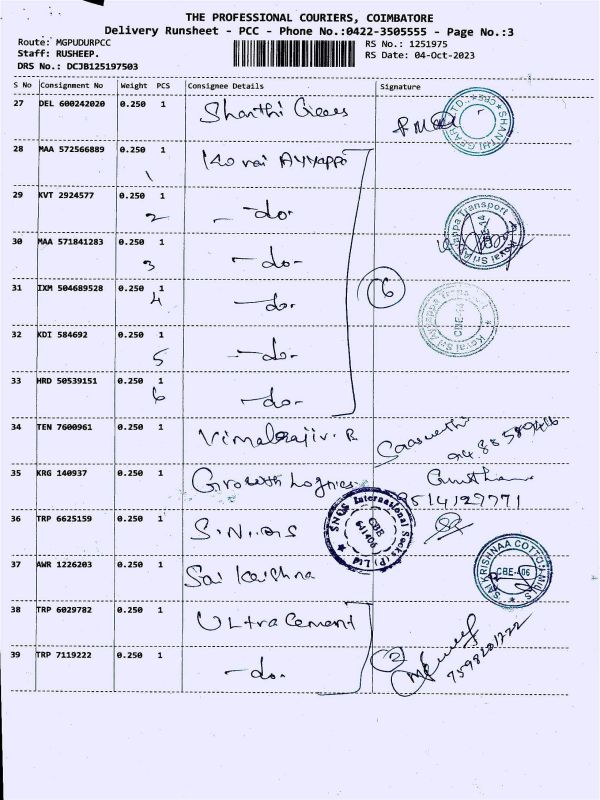 THE PROFESSIONAL COURIERS, COIMBATORE
Delivery Runsheet - PCC - Phone No.:0422-3505555 - Page No.:3
Route: MGPUDURPCC
Staff: RUSHEEP.
DRS No.: DCJB125197503
RS No.: 1251975
RS Date: 04-Oct-2023
S No Consignment No Weight PCS Consignee Details Signature
27 DEL 600242020 0.250 1 Shanthi Gears
SHANTHI GEAR LTD.
28 MAA 572566889 0.250 1 Kovai Ayyappa
1
29 KVT 2924577 0.250 1 - do -
2
Kovai Sri Ayyappa Transport CBE-14
30 MAA 571841283 0.250 1 - do -
3
31 IXM 504689528 0.250 1 - do -
4
6
Kovai Sri Ayyappa Transport CBE-14
32 KDI 584692 0.250 1 - do -
5
33 HRD 50539151 0.250 1 - do -
6
34 TEN 7600961 0.250 1 Vimalrajiv. R Saraswathi
35 KRG 140937 0.250 1 Growth Lognics
9514127771
36 TRP 6625159 0.250 1 S.N.
SNQS International Socks (P) Ltd CBE 641406
37 AWR 1226203 0.250 1 Sai Krishna
SAI KRISHNAA COTTON MILLS CBE-406
38 TRP 6029782 0.250 1 ULtra Cement
39 TRP 7119222 0.250 1 - do -
2
7598201222